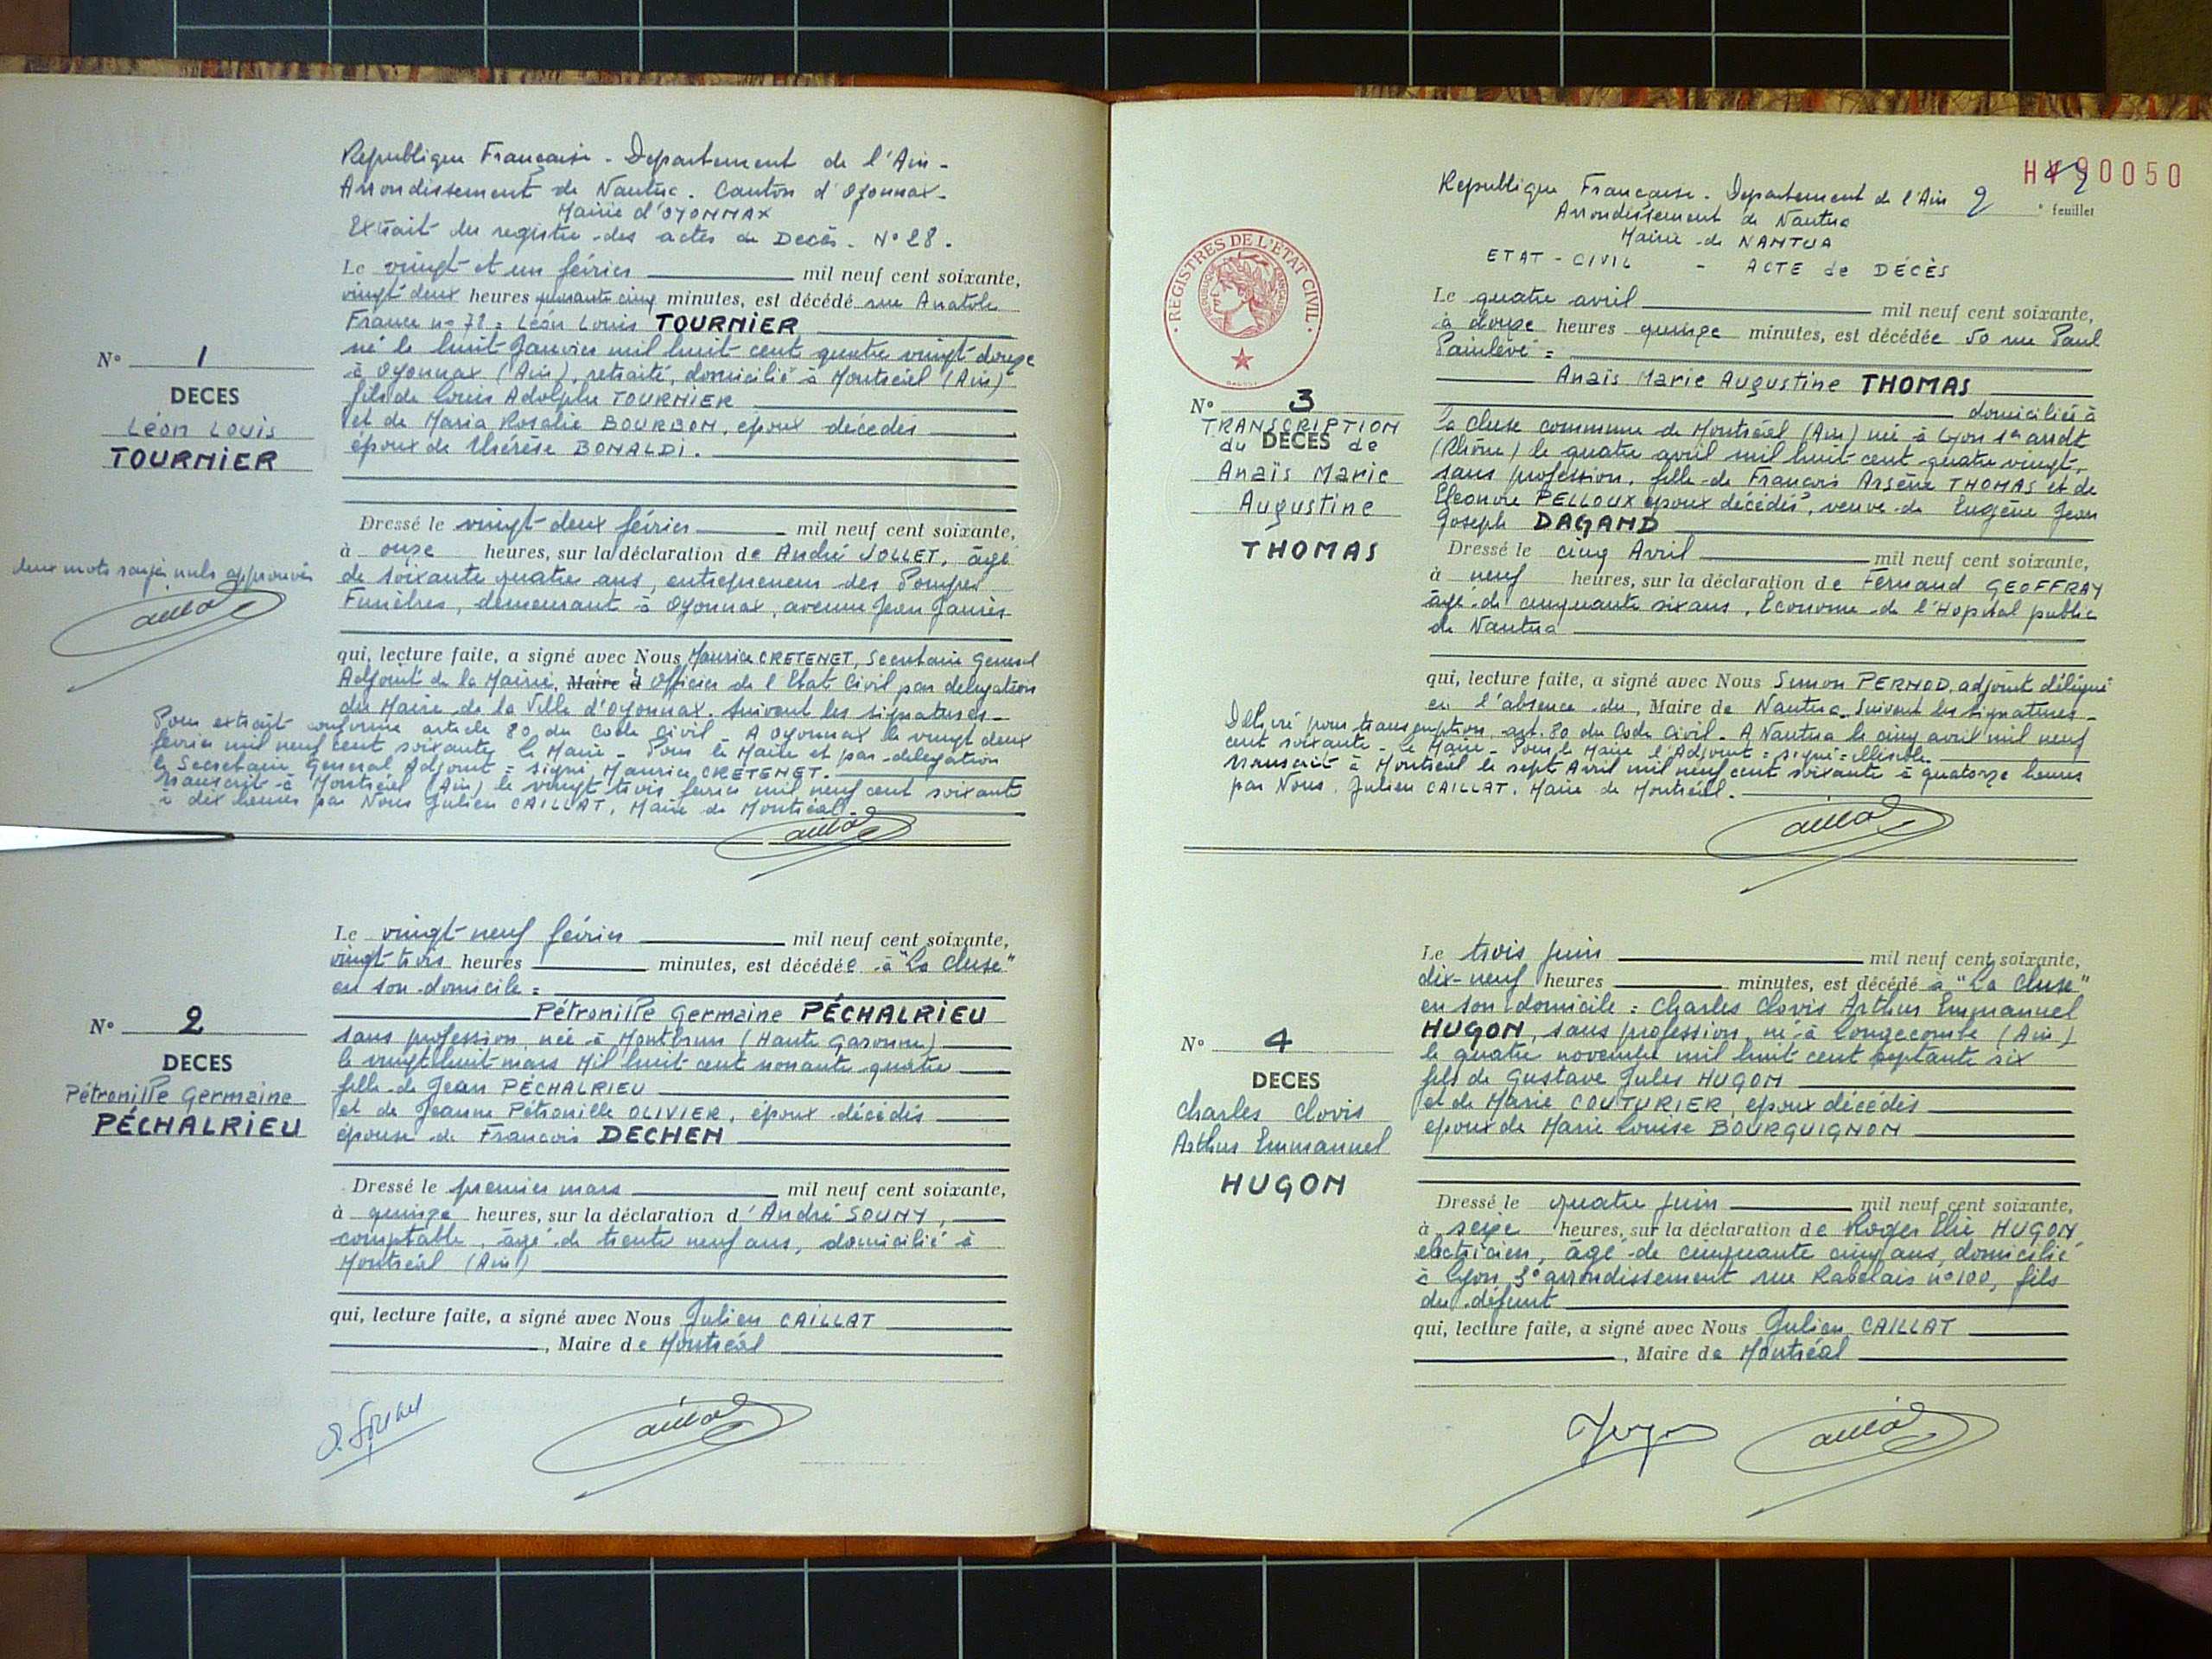 Republique Francaise - Departement de l'Ain -
Arrondissement de Nantua. Canton d'Oyonnax -
Mairie d'OYONNAX
Extrait du registre des actes de Decès. N° 28.
Le vingt et un février mil neuf cent soixante,
vingt deux heures quarante cinq minutes, est décédé rue Anatole
France n° 78 = Léon Louis TOURNIER
né le huit Janvier mil huit cent quatre vingt douze
à Oyonnax (Ain), retraité, domicilié à Montréal (Ain)
fils de Louis Adolphe TOURNIER
et de Maria Rosalie BOURBON, époux décédés
époux de Thérèse BONALDI.
N° 1
DECES
Léon Louis
TOURNIER
Dressé le vingt deux février mil neuf cent soixante,
à onze heures, sur la déclaration de André JOLLET, âgé
de soixante quatre ans, entrepreneur des Pompes
Funèbres, demeurant à Oyonnax, avenue Jean Jaurès
deux mots rayés nuls approuvés
qui, lecture faite, a signé avec Nous Maurice CRETENET, Secretaire General
Adjoint de la Mairie, Maire d Officier de l'Etat Civil par delegation
du Maire de la Ville d'Oyonnax. Suivent les signatures -
Pour extrait conforme article 80 du Code Civil - A Oyonnax le vingt deux
février mil neuf cent soixante, le Maire - Pour le Maire et par delegation
le Secretaire General Adjoint = signé Maurice CRETENET.
Transcrit à Montréal (Ain) le vingt trois fevrier mil neuf cent soixante
à dix heures par Nous Julien CAILLAT, Maire de Montréal.
Le vingt neuf février mil neuf cent soixante,
vingt trois heures minutes, est décédée à "La Cluse"
en son domicile =
Pétronille Germaine PÉCHALRIEU
sans profession née à Montbrun (Haute Garonne)
le vingt huit mars Mil huit cent nonante quatre
fille de Jean PÉCHALRIEU
et de Jeanne Pétronille OLIVIER, époux décédés
épouse de Francois DECHEN
N° 2
DECES
Pétronille Germaine
PÉCHALRIEU
Dressé le premier mars mil neuf cent soixante,
à quinze heures, sur la déclaration d'André SOUNY,
comptable, âgé de trente neuf ans, domicilié à
Montréal (Ain)
qui, lecture faite, a signé avec Nous Julien CAILLAT
, Maire de Montréal
HV90050
Republique Francaise - Departement de l'Ain 2 e feuillet
Arrondissement de Nantua
Mairie de NANTUA
ETAT-CIVIL - ACTE de DÉCÈS
REGISTRES DE L'ETAT CIVIL
Le quatre avril mil neuf cent soixante,
à douze heures quinze minutes, est décédée 50 rue Paul
Painlevé =
Anaïs Marie Augustine THOMAS
domiciliée à
La Cluse commune de Montréal (Ain) née à Lyon 1er arrdt
(Rhône) le quatre avril mil huit cent quatre vingt,
sans profession, fille de Francois Arsène THOMAS et de
Eléonore PELLOUX époux décédés, veuve de Eugène Jean
Joseph DAGAND
N° 3
TRANSCRIPTION
du DECES de
Anaïs Marie
Augustine
THOMAS
Dressé le cinq Avril mil neuf cent soixante,
à neuf heures, sur la déclaration de Fernand GEOFFRAY
âgé de cinquante six ans, Econome de l'Hopital public
de Nantua
qui, lecture faite, a signé avec Nous Simon PERNOD, adjoint délégué
en l'absence du, Maire de Nantua. Suivent les signatures -
Délivré pour transcription art. 80 du Code Civil - A Nantua le cinq avril mil neuf
cent soixante - le Maire - Pour le Maire l'Adjoint = signé = illisible
Transcrit à Montréal le sept Avril mil neuf cent soixante à quatorze heures
par Nous, Julien CAILLAT, Maire de Montréal.
Le trois juin mil neuf cent soixante,
dix-neuf heures minutes, est décédé à "La Cluse"
en son domicile = Charles Clovis Arthur Emmanuel
HUGON, sans profession, né à Longecombe (Ain)
le quatre novembre mil huit cent septante six
fils de Gustave Jules HUGON
et de Marie COUTURIER, époux décédés
époux de Marie Louise BOURGUIGNON
N° 4
DECES
Charles Clovis
Arthur Emmanuel
HUGON
Dressé le quatre juin mil neuf cent soixante,
à seize heures, sur la déclaration de Roger Elie HUGON,
electricien, âgé de cinquante cinq ans, domicilié
à Lyon 3° arrondissement rue Rabelais n° 100, fils
du défunt
qui, lecture faite, a signé avec Nous Julien CAILLAT
, Maire de Montréal